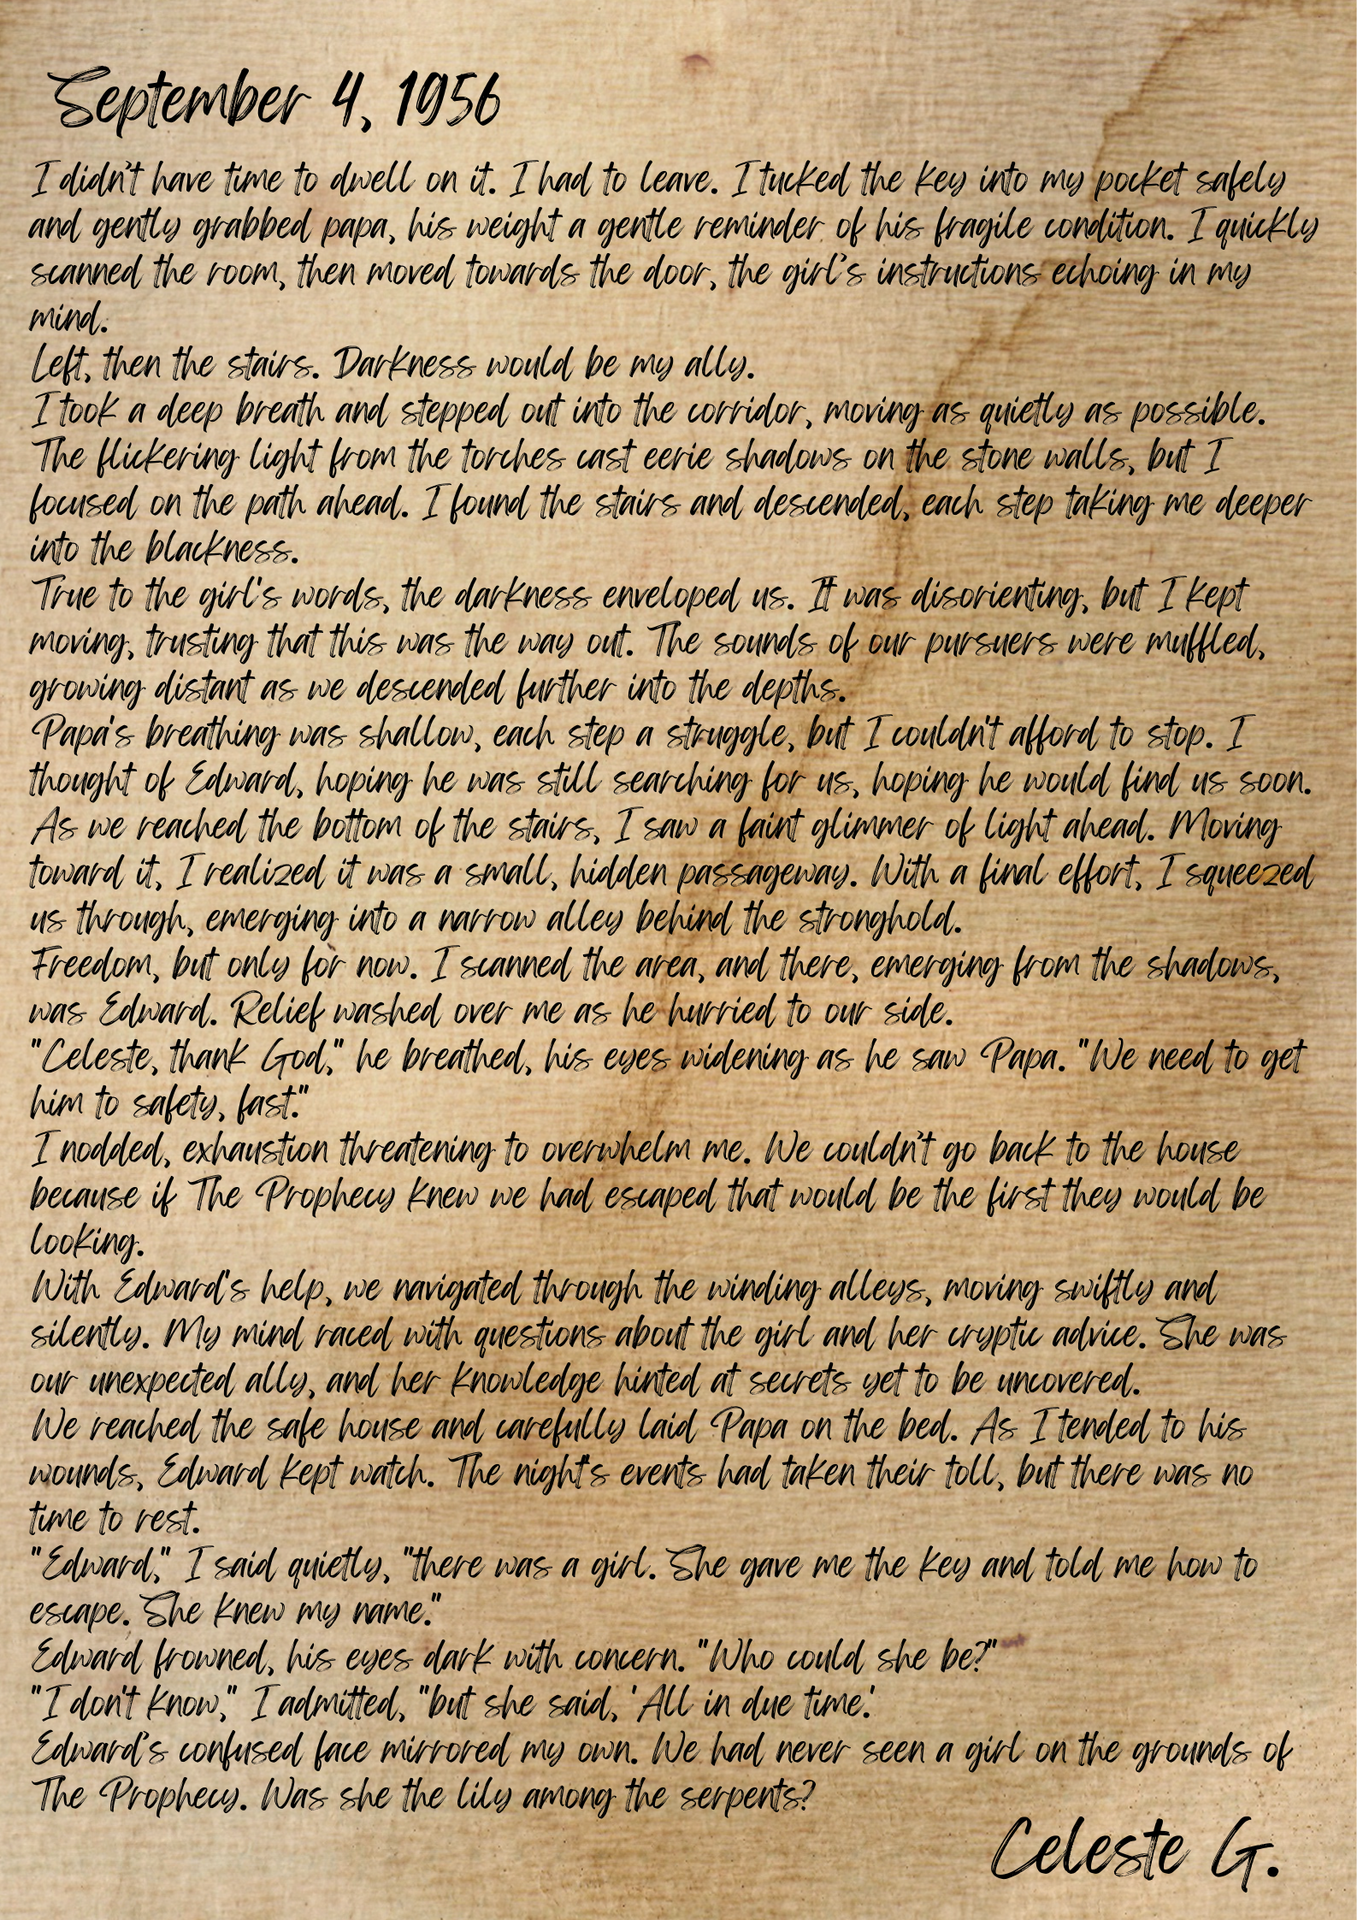 September 4, 1956
I didn't have time to dwell on it. I had to leave. I tucked the key into my pocket safely
and gently grabbed papa, his weight a gentle reminder of his fragile condition. I quickly
scanned the room, then moved towards the door, the girl's instructions echoing in my
mind.
Left, then the stairs. Darkness would be my ally.
I took a deep breath and stepped out into the corridor, moving as quietly as possible.
The flickering light from the torches cast eerie shadows on the stone walls, but I
focused on the path ahead. I found the stairs and descended, each step taking me deeper
into the blackness.
True to the girl's words, the darkness enveloped us. It was disorienting, but I kept
moving, trusting that this was the way out. The sounds of our pursuers were muffled,
growing distant as we descended further into the depths.
Papa's breathing was shallow, each step a struggle, but I couldn't afford to stop. I
thought of Edward, hoping he was still searching for us, hoping he would find us soon.
As we reached the bottom of the stairs, I saw a faint glimmer of light ahead. Moving
toward it, I realized it was a small, hidden passageway. With a final effort, I squeezed
us through, emerging into a narrow alley behind the stronghold.
Freedom, but only for now. I scanned the area, and there, emerging from the shadows,
was Edward. Relief washed over me as he hurried to our side.
"Celeste, thank God," he breathed, his eyes widening as he saw Papa. "We need to get
him to safety, fast."
I nodded, exhaustion threatening to overwhelm me. We couldn't go back to the house
because if The Prophecy knew we had escaped that would be the first they would be
looking.
With Edward's help, we navigated through the winding alleys, moving swiftly and
silently. My mind raced with questions about the girl and her cryptic advice. She was
our unexpected ally, and her knowledge hinted at secrets yet to be uncovered.
We reached the safe house and carefully laid Papa on the bed. As I tended to his
wounds, Edward kept watch. The night's events had taken their toll, but there was no
time to rest.
"Edward," I said quietly, "there was a girl. She gave me the key and told me how to
escape. She knew my name."
Edward frowned, his eyes dark with concern. "Who could she be?"
"I don't know," I admitted, "but she said, 'All in due time.'
Edward's confused face mirrored my own. We had never seen a girl on the grounds of
The Prophecy. Was she the lily among the serpents?
Celeste G.